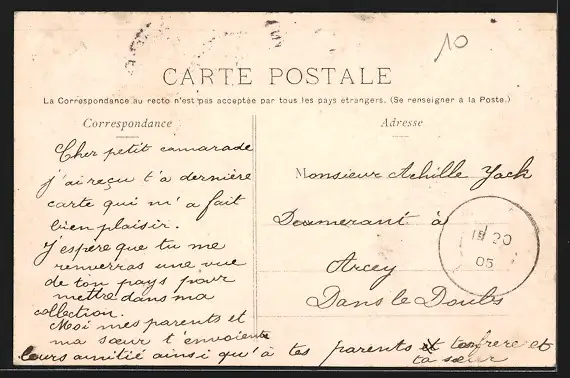 10
CARTE POSTALE
La Correspondance au recto n'est pas acceptée par tous les pays étrangers. (Se renseigner à la Poste.)
Correspondance
Cher petit camarade
j'ai reçu t'a dernière
carte qui m'a fait
bien plaisir.
J'espère que tu me
renverras une vue
de ton pays pour
mettre dans ma
collection.
Moi mes parents et
ma sœur t'envoient
leurs amitié ainsi qu'à tes parents et ton frere et
ta sœur
Adresse
Monsieur Achille Jack
Demeurant à
Arcey
Dans le Doubs
20
05